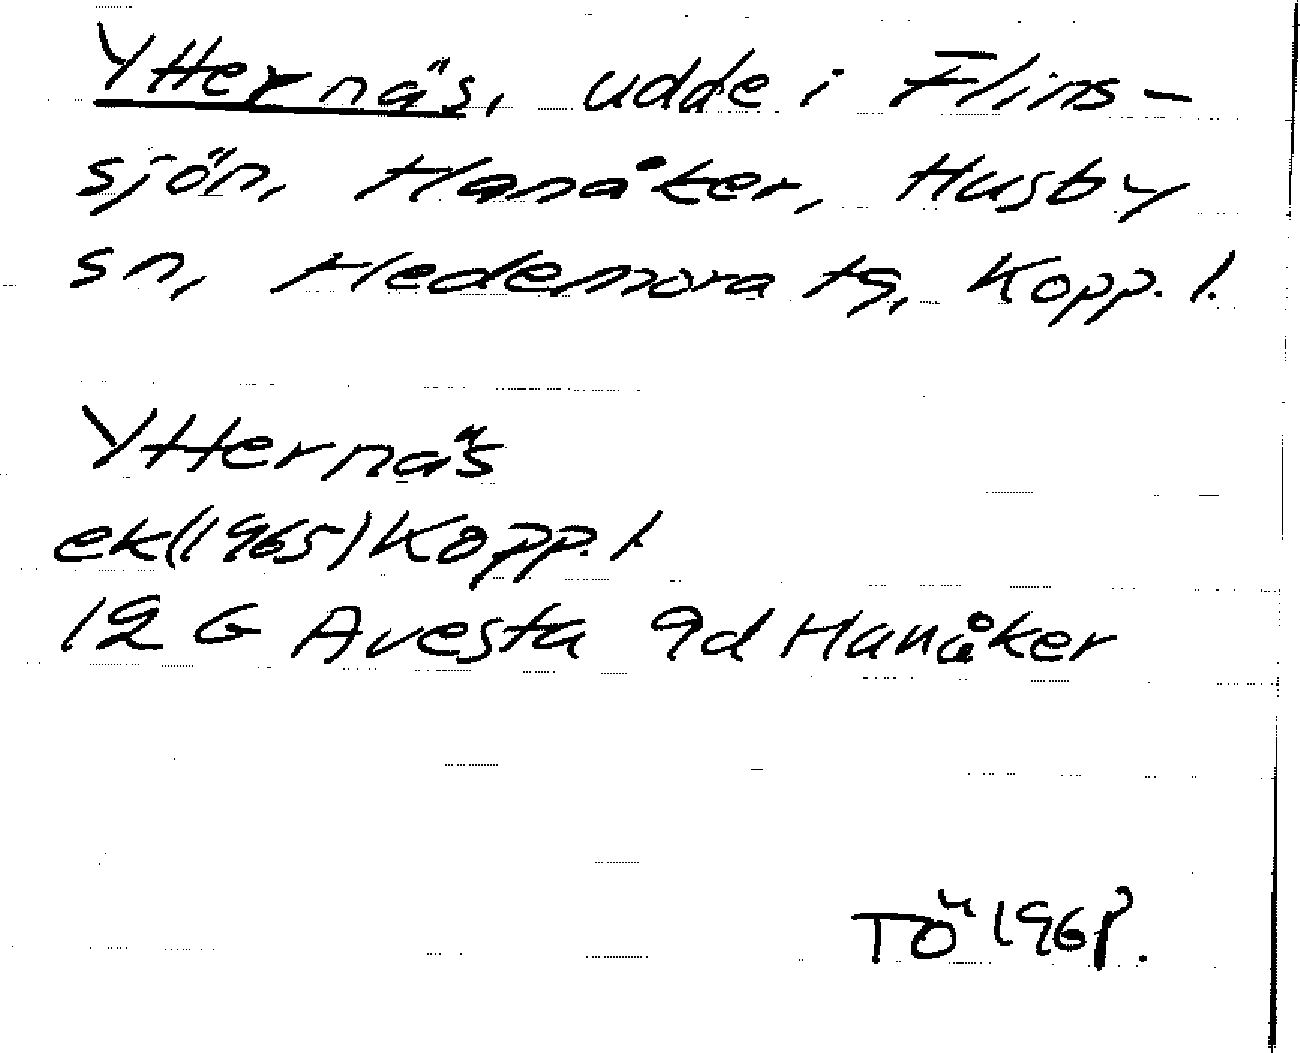 Ytternäs, udde i Flins-
sjön, Hanåker, Husby
sn, Hedemora tg, Kopp. l.
Ytternäs
ek(1965) Kopp. l.
12 G Avesta 9d Hanåker
TÖ